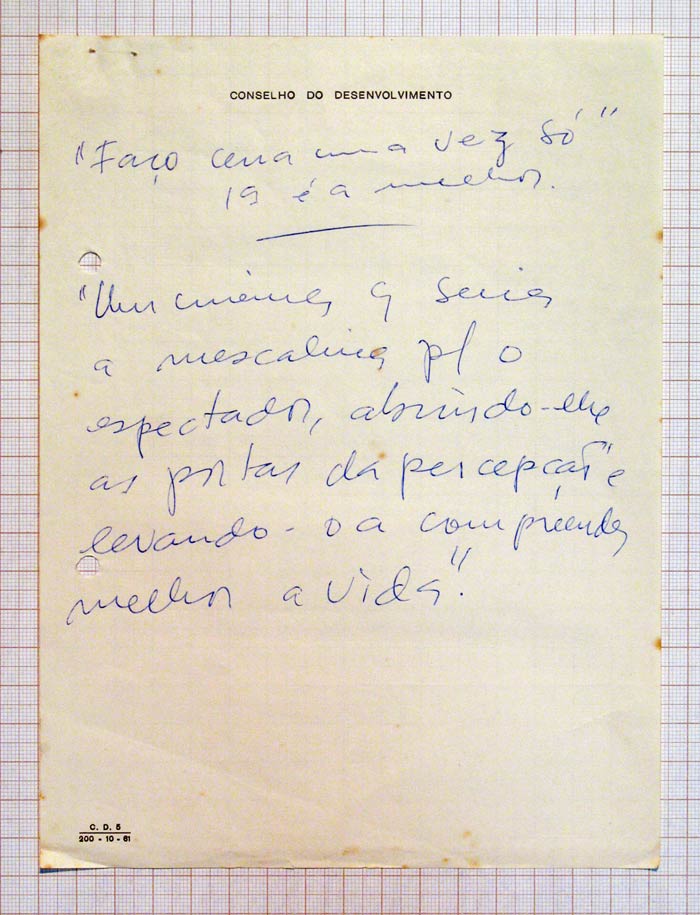 CONSELHO DO DESENVOLVIMENTO
"Faço cena uma vez só"
1ª é a melhor.
"Um cinema q seria
a mescalina p/ o
espectador, abrindo-lhe
as portas da percepção e
levando-o a compreender
melhor a vida".
C. D. 5
200 - 10 - 61